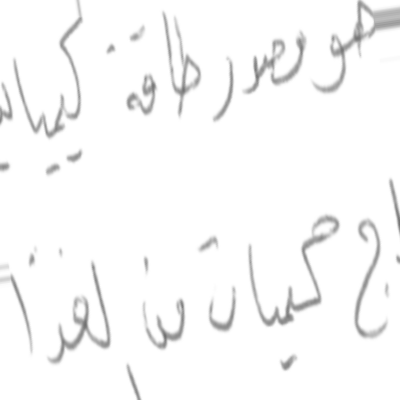 هو مصدر طاقة كيميا
اج كميات من الغذا